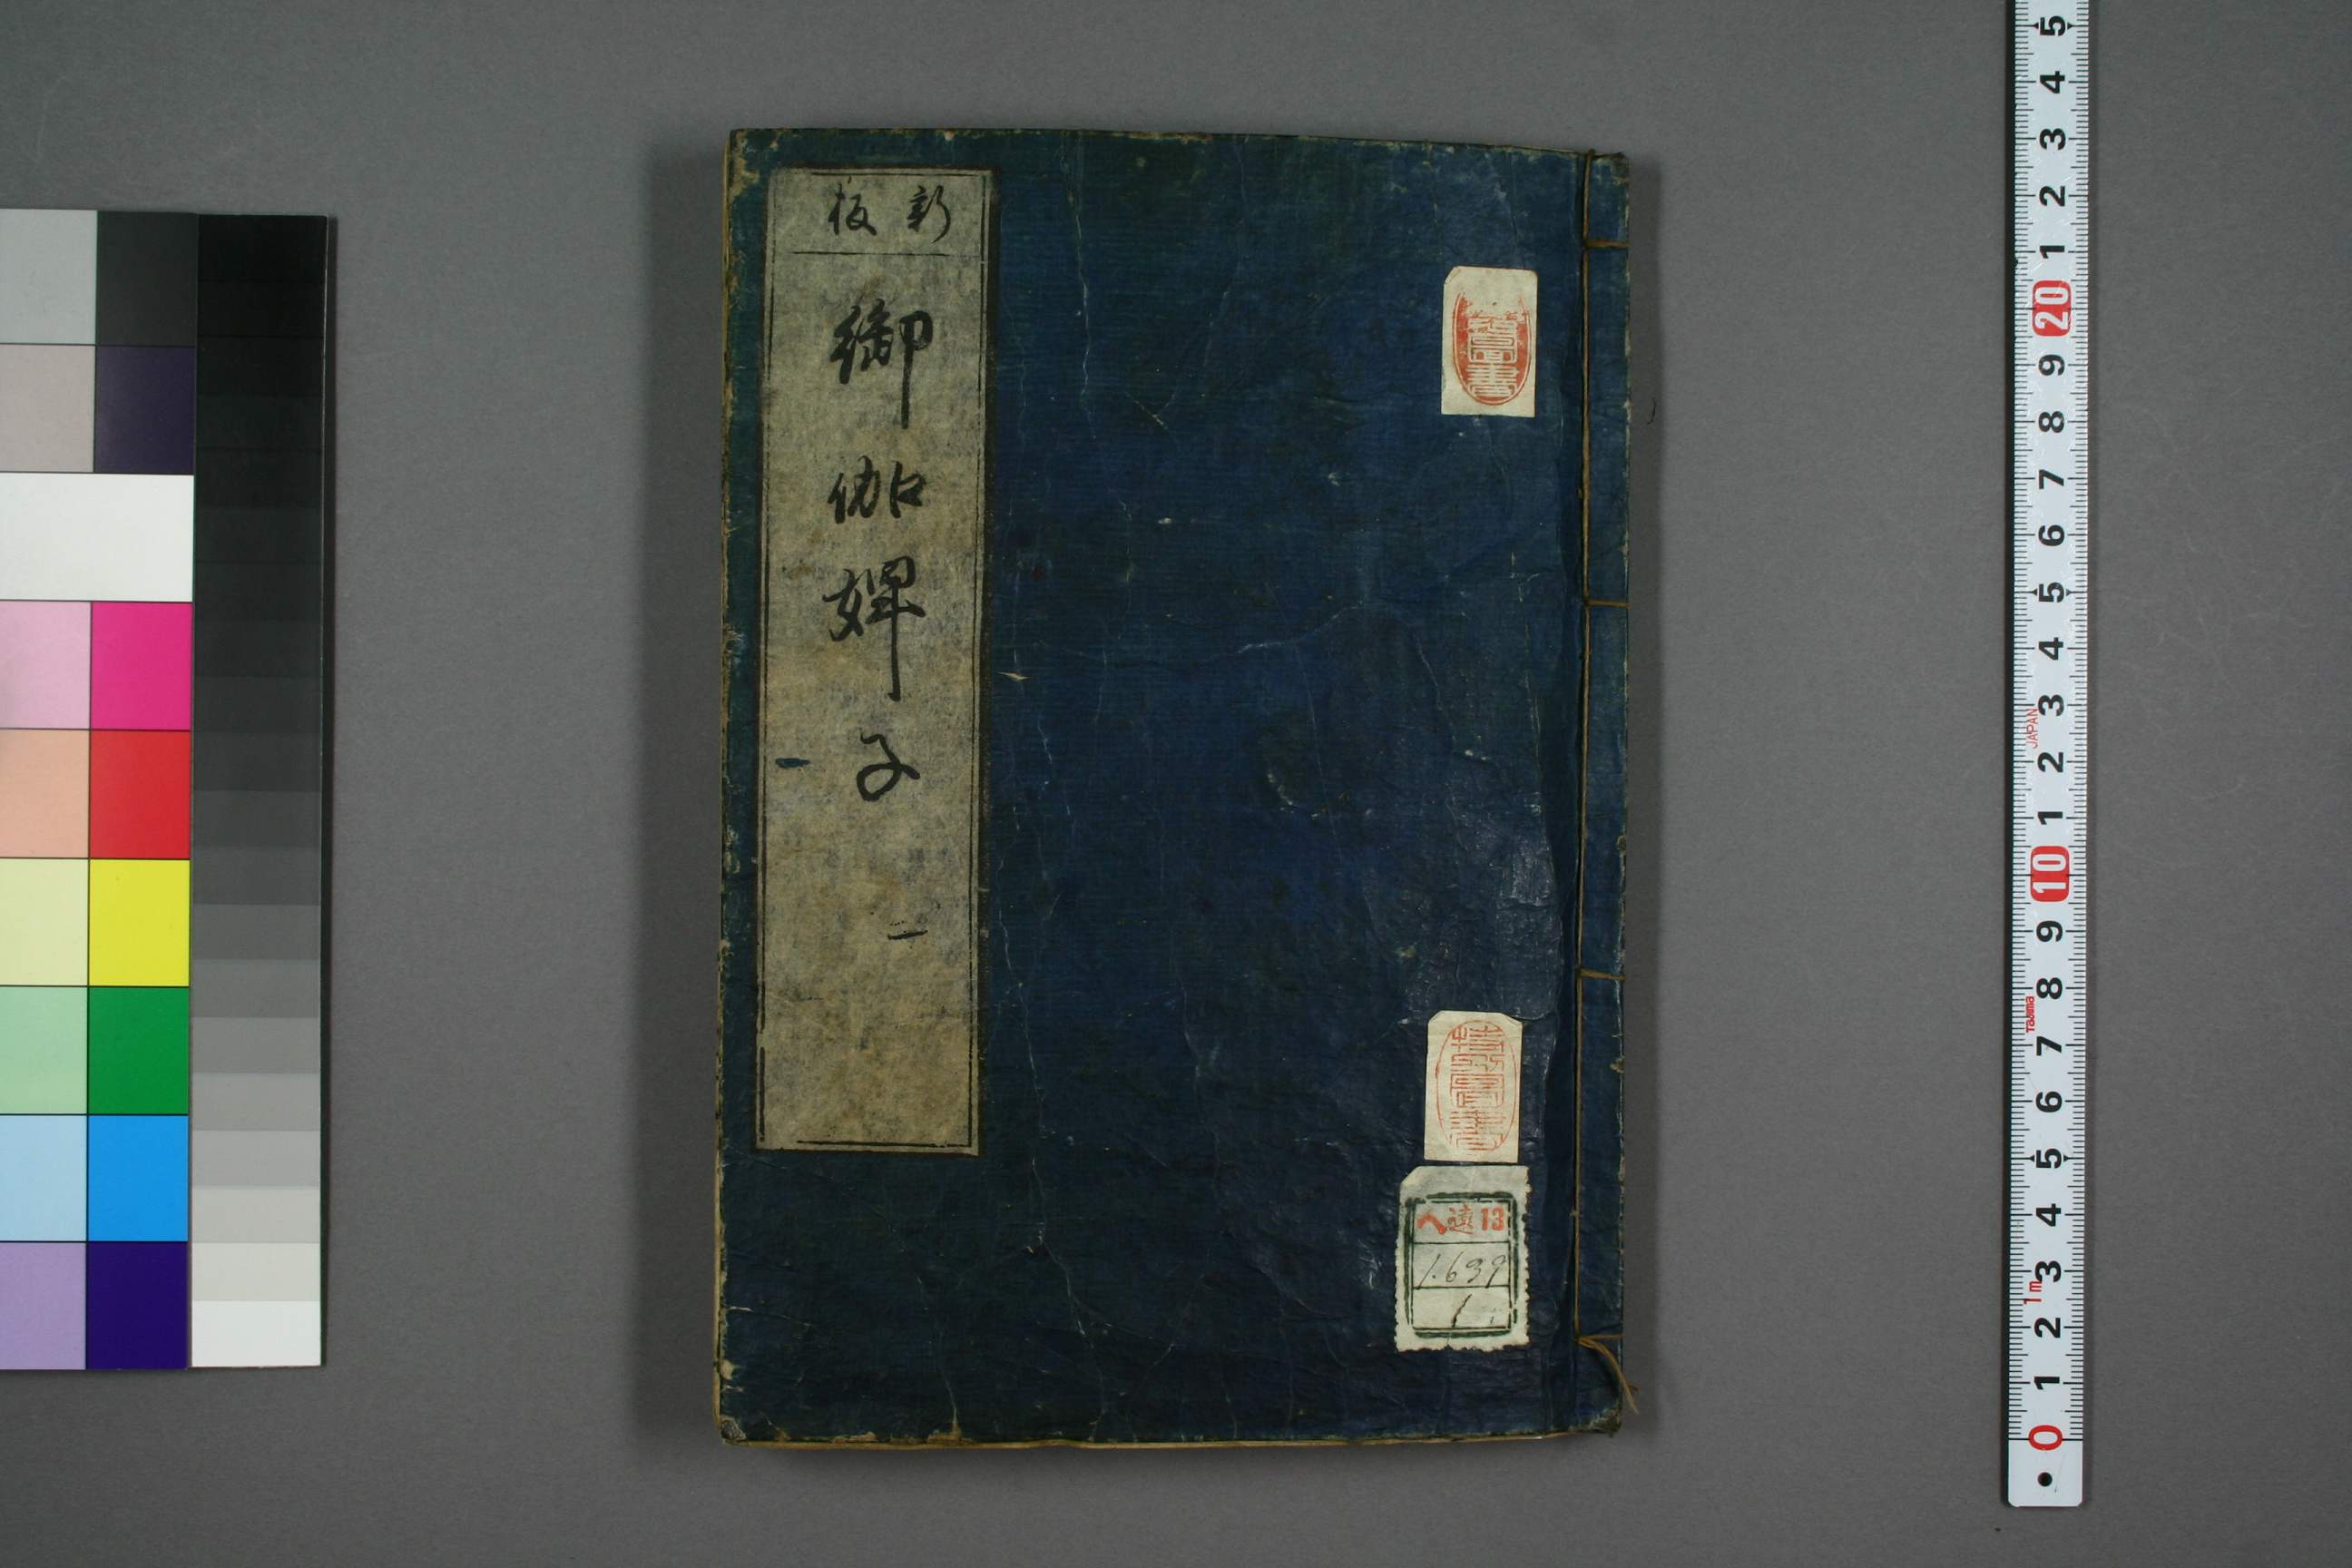 新板
御伽婢子
一
へ遠13
1639
1
5
4
3
2
1
20
9
8
7
6
5
4
3
2
1
10
9
8
7
6
5
4
3
2
1
0
JAPAN
Tajima
1m